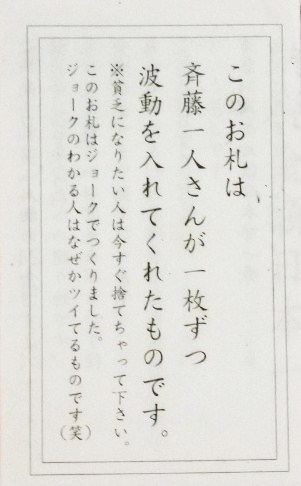 このお札は
斉藤一人さんが一枚ずつ
波動を入れてくれたものです。
※貧乏になりたい人は今すぐ捨てちゃって下さい。
このお札はジョークでつくりました。
ジョークのわかる人はなぜかツイてるものです(笑)